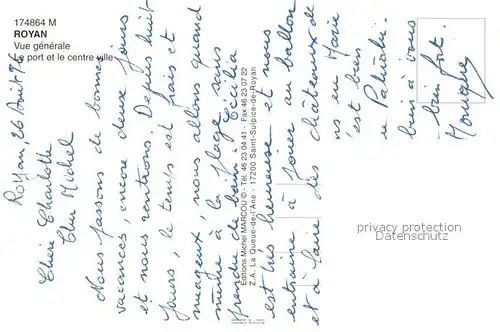 174864 M
ROYAN
Vue générale
Le port et le centre ville
Royan, 26 Août 95
Chère Charlotte
Cher Michel
Nous passons de bonnes
vacances, encore deux jours
et nous rentrons. Depuis huit
jours, le temps est frais et
nuageux, nous allons quand
même à la plage, sans
prendre de bain. Cécilia
est très heureuse et nous
entraîne à jouer au ballon
et à faire des châteaux de
Marie
c'est bien
bien à vous
bien fort.
Monique
Editions Michel MARCOU © - Tél. 46 23 04 41 - Fax 46 23 07 22
Z.A. La Queue-de-l'Ane - 17200 Saint-Sulpice-de-Royan
privacy protection
Datenschutz